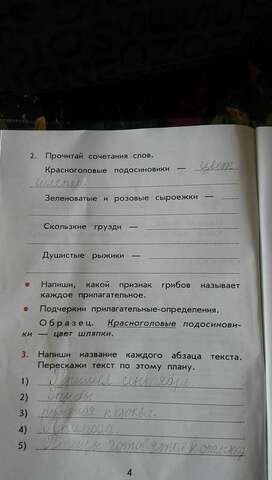 2. Прочитай сочетания слов.
Красноголовые подосиновики — цвет
шляпки.
Зеленоватые и розовые сыроежки —
Скользкие грузди —
Душистые рыжики —
• Напиши, какой признак грибов называет
каждое прилагательное.
• Подчеркни прилагательные-определения.
Образец. Красноголовые подосинови-
ки — цвет шляпки.
3. Напиши название каждого абзаца текста.
Перескажи текст по этому плану.
1)
2)
3)
4)
5)
4